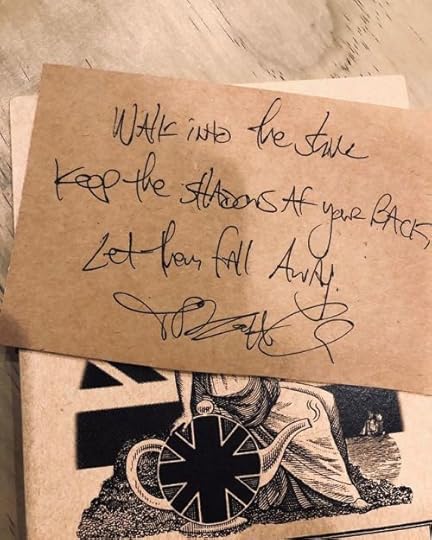 WALK into the
Keep the SHADOWS AT your BACK,
Let them fAll AWAY.